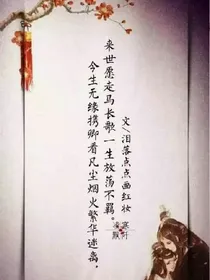 今生无缘携卿看凡尘烟火繁华迷离。
来世愿走马长歌一生放荡不羁。
文\泪落点点画红妆